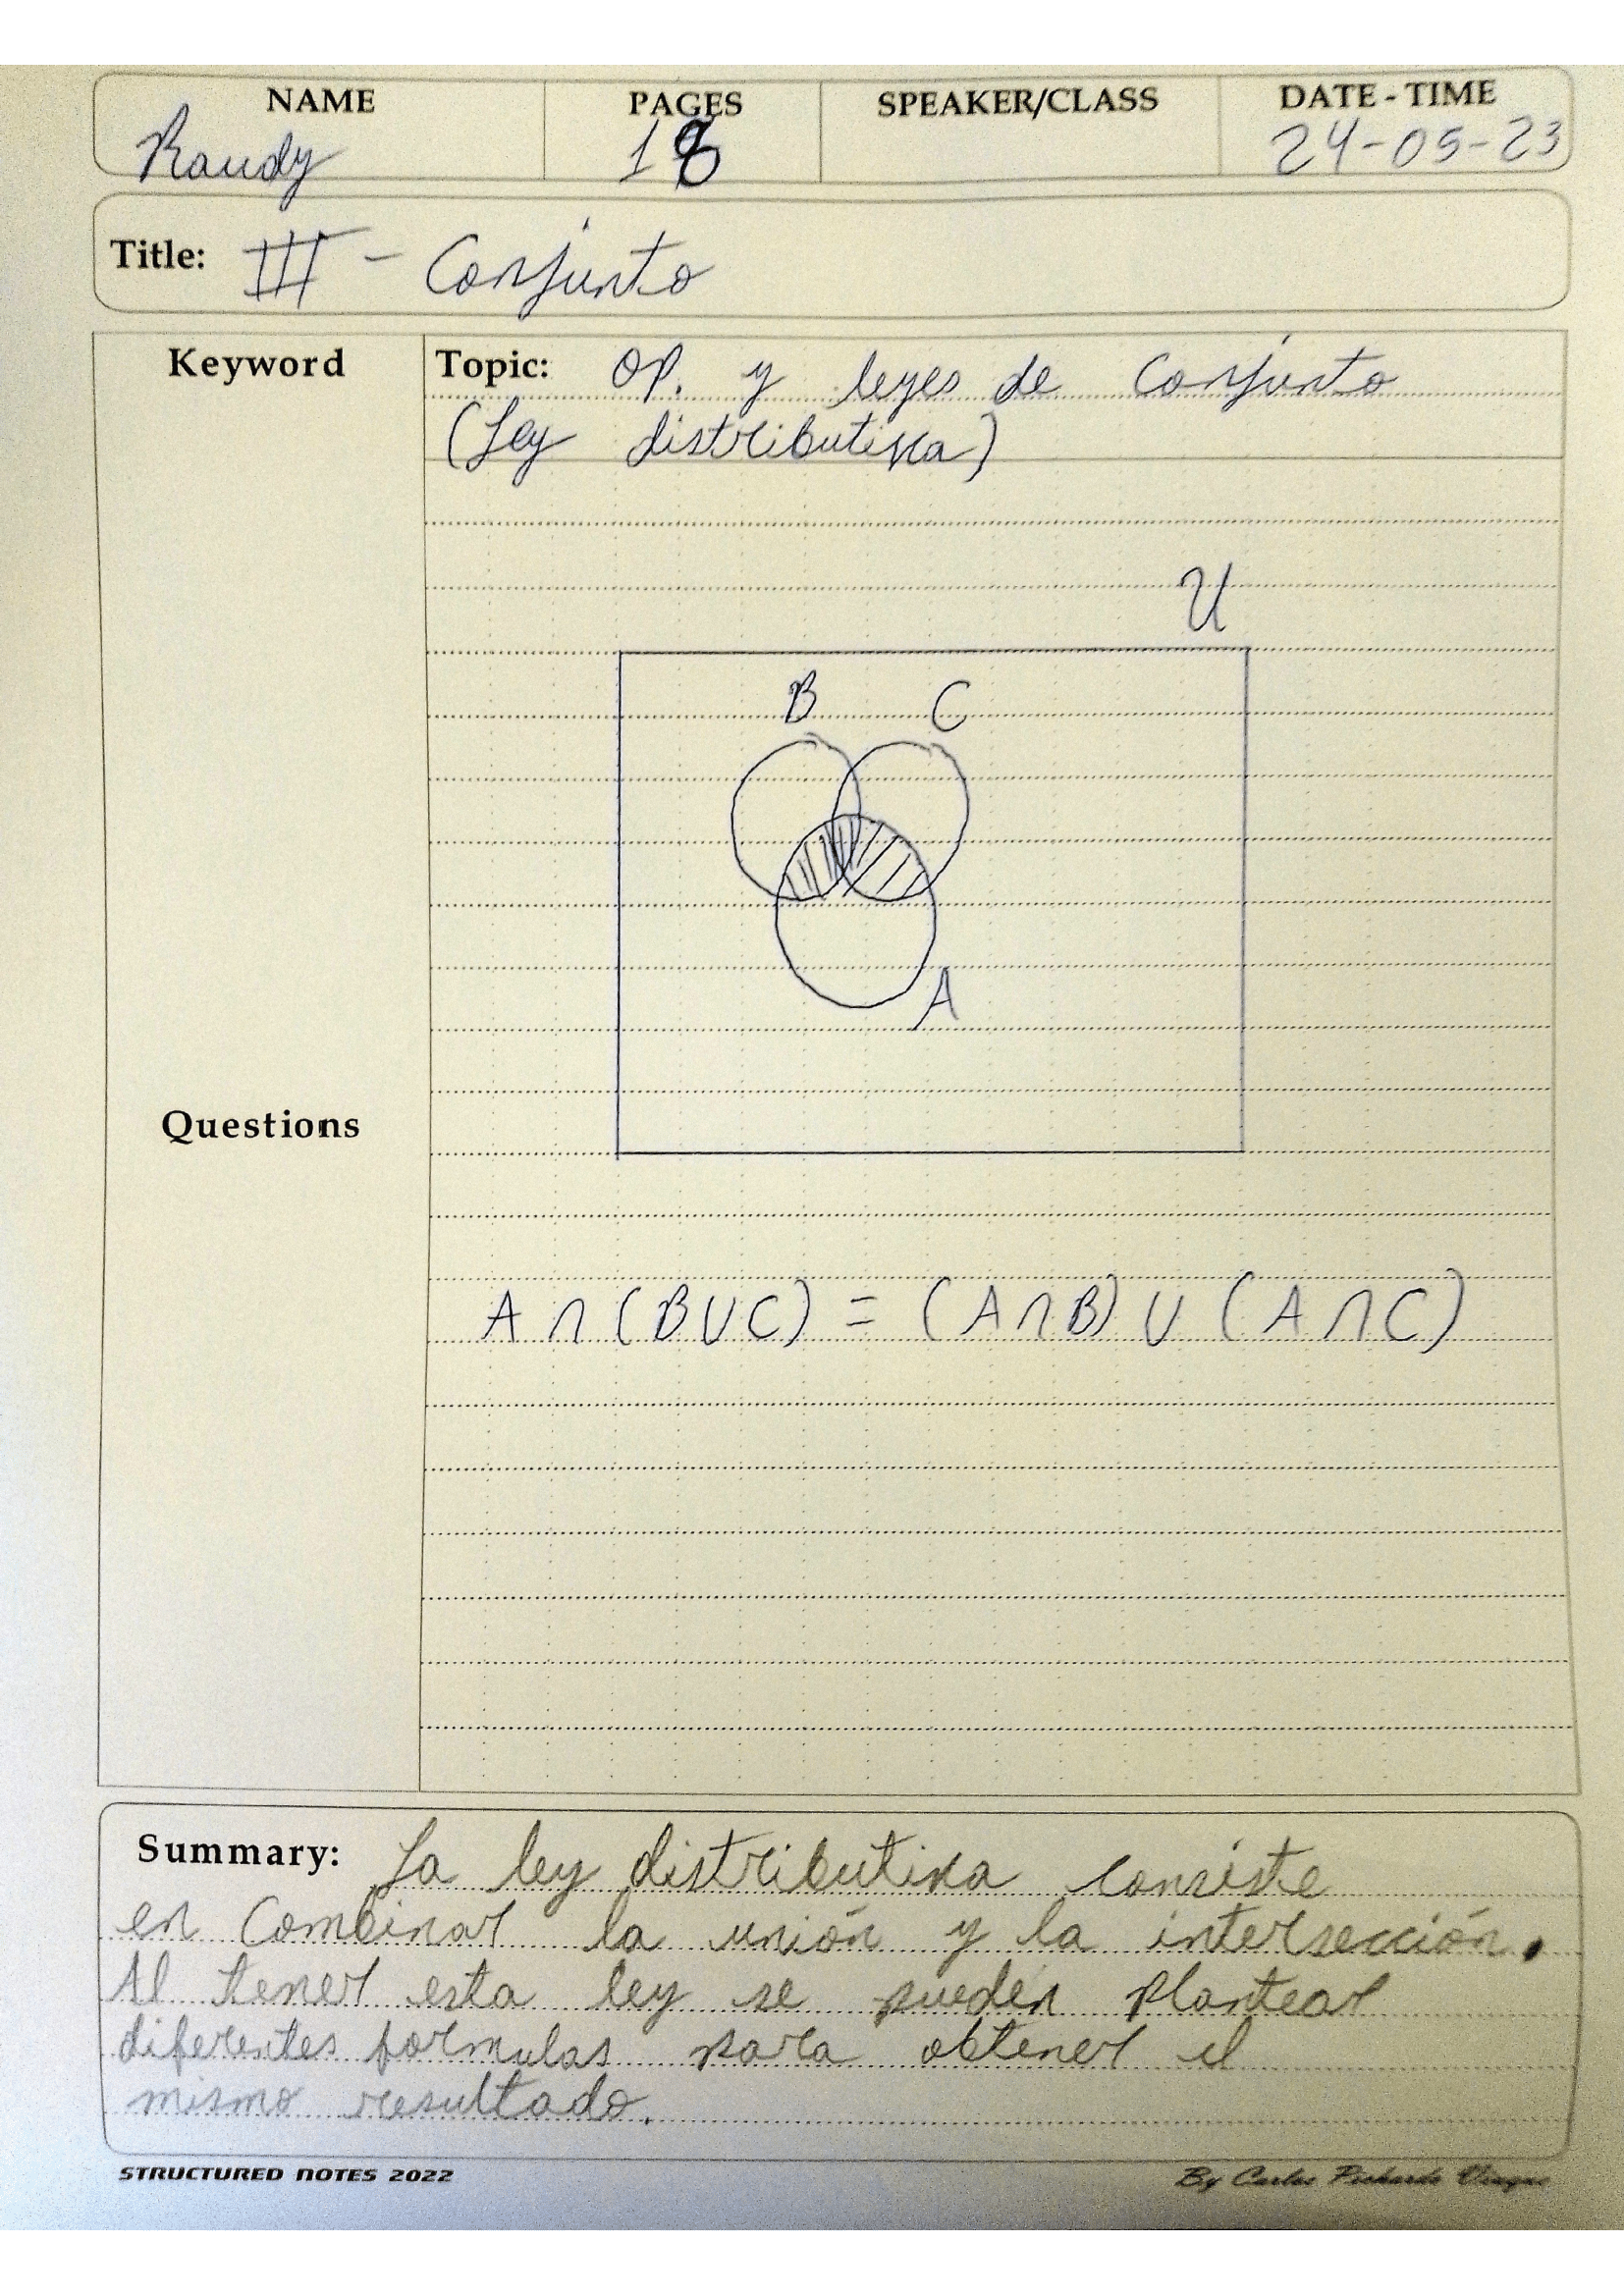 NAME PAGES SPEAKER/CLASS DATE - TIME
Randy 18 24-05-23
Title: III - Conjunto
Keyword
Topic: OP. y leyes de Conjunto
(Ley distributiva)
U
B C
A
Questions
A ∩ (B ∪ C) = (A ∩ B) ∪ (A ∩ C)
Summary: La ley distributiva consiste
en Combinar la unión y la intersección.
Al tener esta ley se pueden plantear
diferentes formulas para obtener el
mismo resultado.
STRUCTURED NOTES 2022 By Carlos Pichardo Vicque